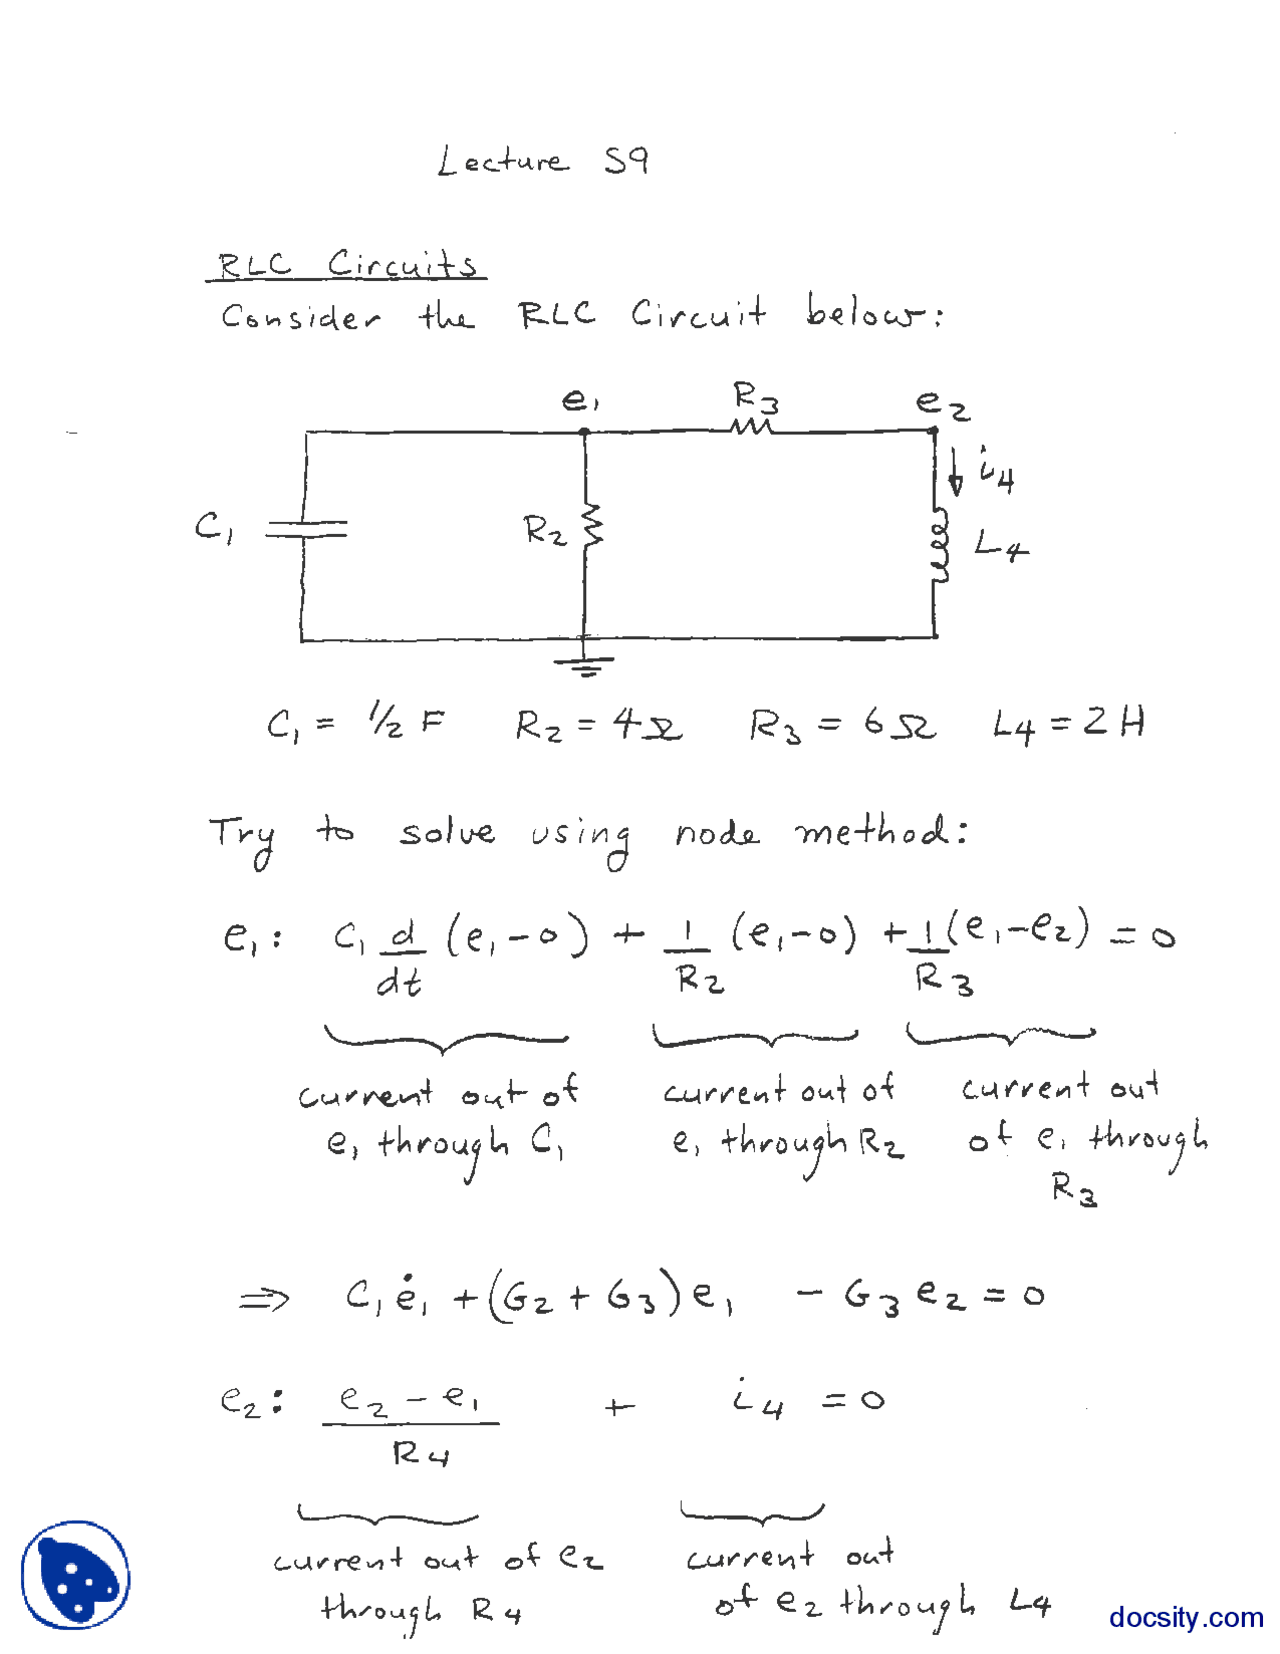 Lecture S9
RLC Circuits
Consider the RLC Circuit below:
e₁ R₃ e₂
i₄
C₁ R₂ L₄
C₁ = ½ F R₂ = 4Ω R₃ = 6Ω L₄ = 2 H
Try to solve using node method:
e₁: C₁ d/dt (e₁ - 0) + 1/R₂ (e₁ - 0) + 1/R₃ (e₁ - e₂) = 0
current out of current out of current out
e₁ through C₁ e₁ through R₂ of e₁ through
R₃
⇒ C₁ ė₁ + (G₂ + G₃) e₁ - G₃ e₂ = 0
e₂: (e₂ - e₁)/R₄ + i₄ = 0
current out of e₂ current out
through R₄ of e₂ through L₄
docsity.com